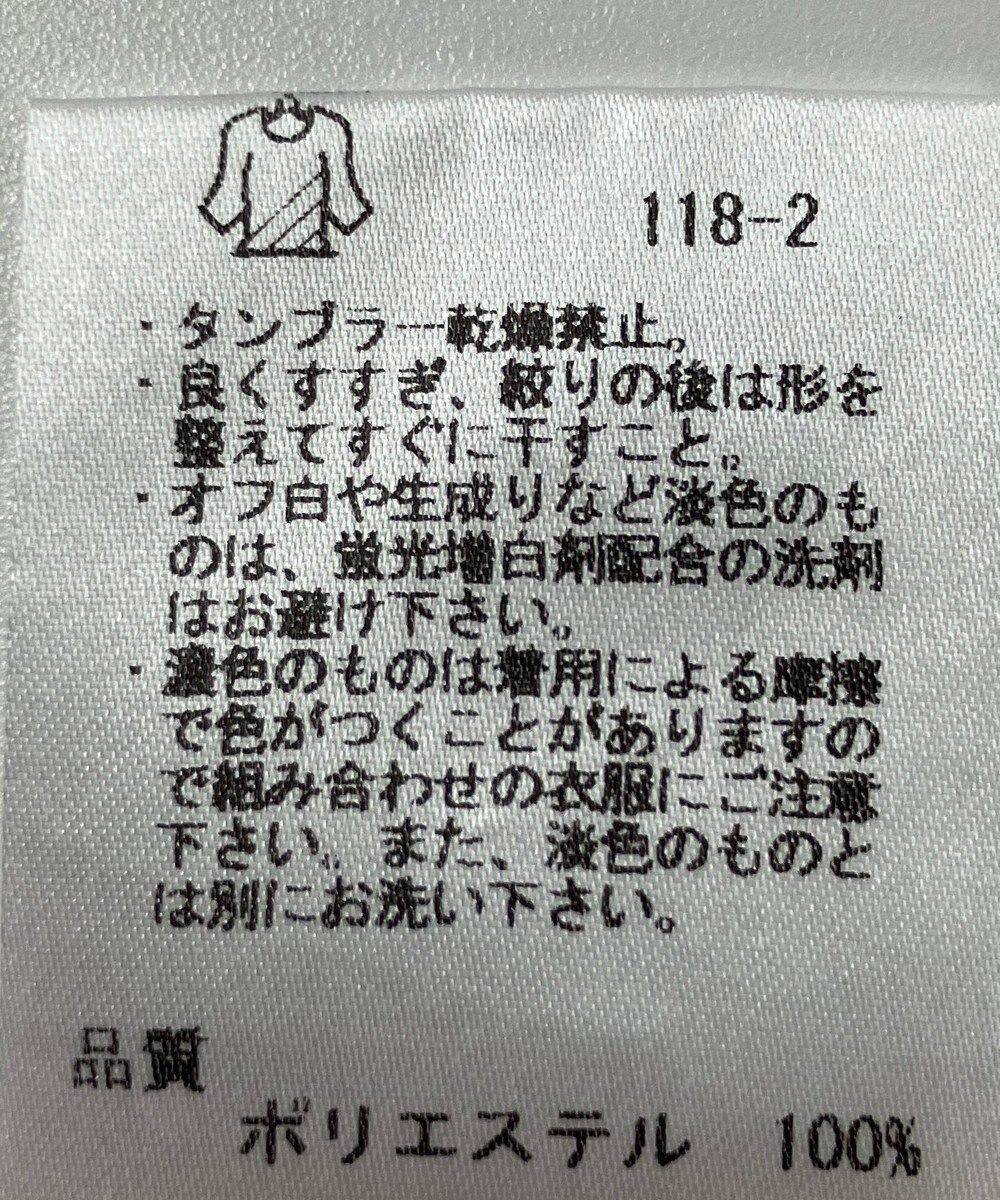 118-2
・タンブラー乾燥禁止。
・良くすすぎ、絞りの後は形を
整えてすぐに干すこと。
・オフ白や生成りなど淡色のも
のは、蛍光増白剤配合の洗剤
はお避け下さい。
・濃色のものは着用による摩擦
で色がつくことがありますの
で組み合わせの衣服にご注意
下さい。また、淡色のものと
は別にお洗い下さい。
品質
ポリエステル 100%